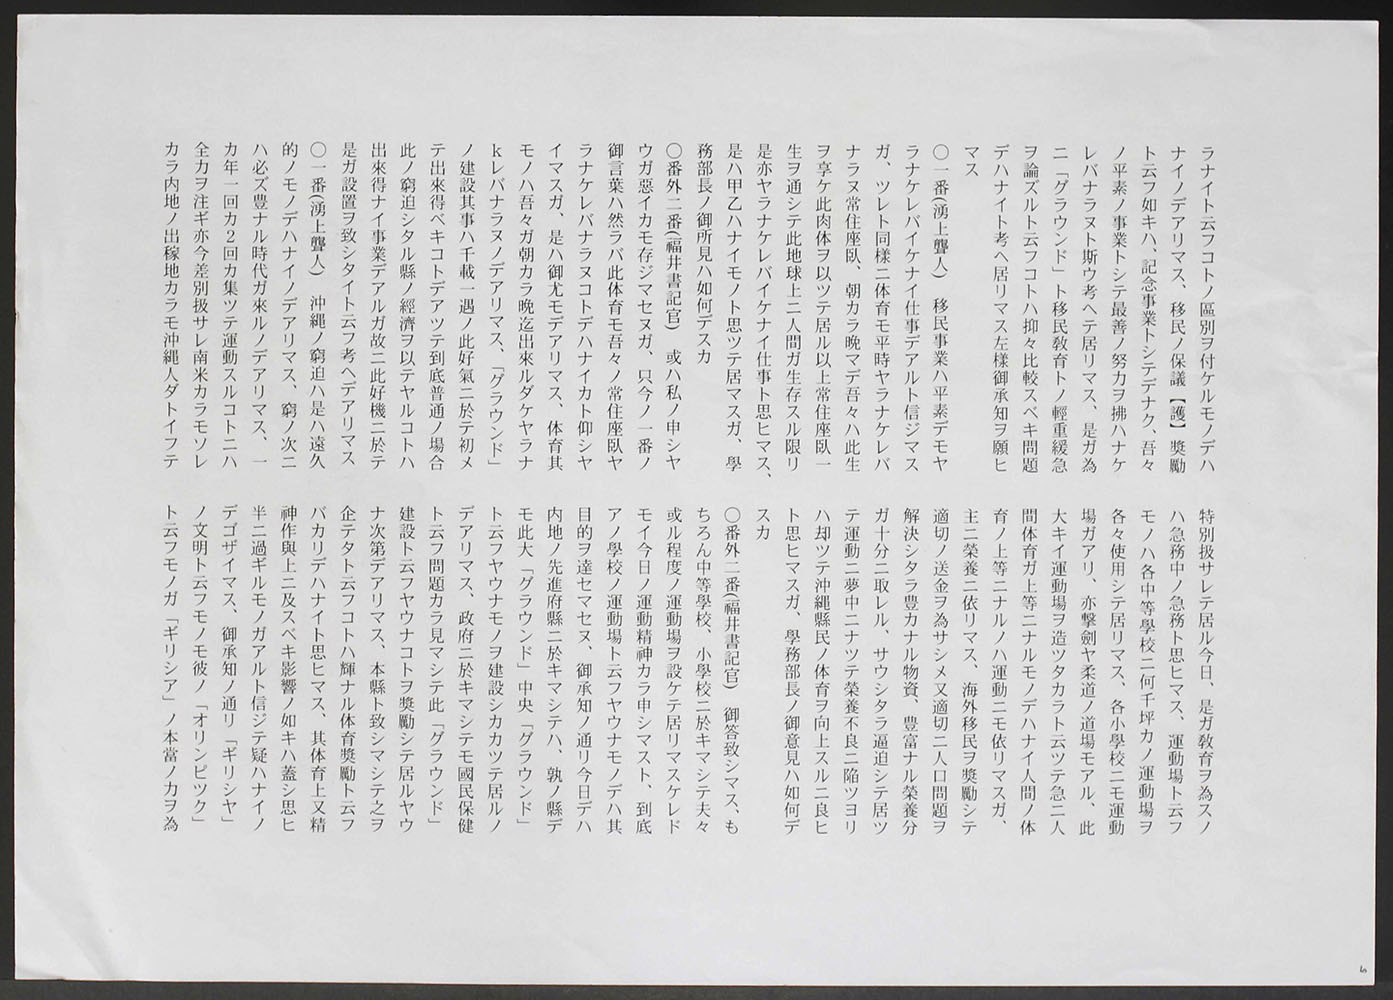 ラナイト云フコトノ區別ヲ付ケルモノデハ
ナイノデアリマス、移民ノ保議【護】奬勵
ト云フ如キハ、記念事業トシテデナク、吾々
ノ平素ノ事業トシテ最善ノ努力ヲ拂ハナケ
レバナラヌト斯ウ考ヘテ居リマス、是ガ為
ニ「グラウンド」ト移民敎育トノ輕重緩急
ヲ論ズルト云フコトハ抑々比較スベキ問題
デハナイト考ヘ居リマス左様御承知ヲ願ヒ
マス
〇一番(湧上聾人)　移民事業ハ平素デモヤ
ラナケレバイケナイ仕事デアルト信ジマス
ガ、ツレト同樣ニ体育モ平時ヤラナケレバ
ナラヌ常住座臥、朝カラ晩マデ吾々ハ此生
ヲ享ケ此肉体ヲ以ツテ居ル以上常住座臥一
生ヲ通シテ此地球上ニ人間ガ生存スル限リ
是亦ヤラナケレバイケナイ仕事ト思ヒマス、
是ハ甲乙ハナイモノト思ツテ居マスガ、學
務部長ノ御所見ハ如何デスカ
〇番外二番(福井書記官)　或ハ私ノ申シヤ
ウガ惡イカモ存ジマセヌガ、只今ノ一番ノ
御言葉ハ然ラバ此体育モ吾々ノ常住座臥ヤ
ラナケレバナラヌコトデハナイカト仰シヤ
イマスガ、是ハ御尤モデアリマス、体育其
モノハ吾々ガ朝カラ晩迄出來ルダケヤラナ
kレバナラヌノデアリマス、「グラウンド」
ノ建設其事ハ千載一遇ノ此好氣ニ於テ初メ
テ出來得ベキコトデアツテ到底普通ノ場合
此ノ窮迫シタル縣ノ經濟ヲ以テヤルコトハ
出來得ナイ事業デアルガ故ニ此好機ニ於テ
是ガ設置ヲ致シタイト云フ考ヘデアリマス
〇一番(湧上聾人)　沖縄ノ窮迫ハ是ハ遠久
的ノモノデハナイノデアリマス、窮ノ次ニ
ハ必ズ豊ナル時代ガ來ルノデアリマス、一
カ年一回カ2回カ集ツテ運動スルコトニハ
全力ヲ注ギ亦今差別扱サレ南米カラモソレ
カラ内地ノ出稼地カラモ沖縄人ダトイフテ
特別扱サレテ居ル今日、是ガ敎育ヲ為スノ
ハ急務中ノ急務ト思ヒマス、運動場ト云フ
モノハ各中等學校ニ何千坪カノ運動場ヲ
各々使用シテ居リマス、各小學校ニモ運動
場ガアリ、亦擊劍ヤ柔道ノ道場モアル、此
大キイ運動場ヲ造ツタカラト云ツテ急ニ人
間体育ガ上等ニナルモノデハナイ人間ノ体
育ノ上等ニナルノハ運動ニモ依リマスガ、
主ニ榮養ニ依リマス、海外移民ヲ奬勵シテ
適切ノ送金ヲ為サシメ又適切ニ人口問題ヲ
解決シタラ豊カナル物資、豊富ナル榮養分
ガ十分ニ取レル、サウシタラ逼迫シテ居ツ
テ運動ニ夢中ニナツテ榮養不良ニ陷ツヨリ
ハ却ツテ沖縄縣民ノ体育ヲ向上スルニ良ヒ
ト思ヒマスガ、學務部長ノ御意見ハ如何デ
スカ
〇番外二番(福井書記官)　御答致シマス、も
ちろん中等學校、小學校ニ於キマシテ夫々
或ル程度ノ運動場ヲ設ケテ居リマスケレド
モイ今日ノ運動精神カラ申シマスト、到底
アノ學校ノ運動場ト云フヤウナモノデハ其
目的ヲ達セマセヌ、御承知ノ通リ今日デハ
内地ノ先進府縣ニ於キマシテハ、孰ノ縣デ
モ此大「グラウンド」中央「グラウンド」
ト云フヤウナモノヲ建設シカカツテ居ルノ
デアリマス、政府ニ於キマシテモ國民保健
ト云フ問題カラ見マシテ此「グラウンド」
建設ト云フヤウナコトヲ奬勵シテ居ルヤウ
ナ次第デアリマス、本縣ト致シマシテ之ヲ
企テタト云フコトハ輝ナル体育奬勵ト云フ
バカリデハナイト思ヒマス、其体育上又精
神作與上ニ及スベキ影響ノ如キハ蓋シ思ヒ
半ニ過ギルモノガアルト信ジテ疑ハナイノ
デゴザイマス、御承知ノ通リ「ギリシヤ」
ノ文明ト云フモノモ彼ノ「オリンピツク」
ト云フモノガ「ギリシア」ノ本當ノ力ヲ為